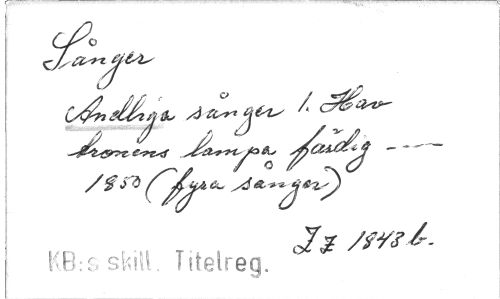 Sånger
Andliga sånger 1. Hav
tronens lampa färdig ----
1850 (fyra sånger)
ZZ 1843 b.
KB:s skill. Titelreg.